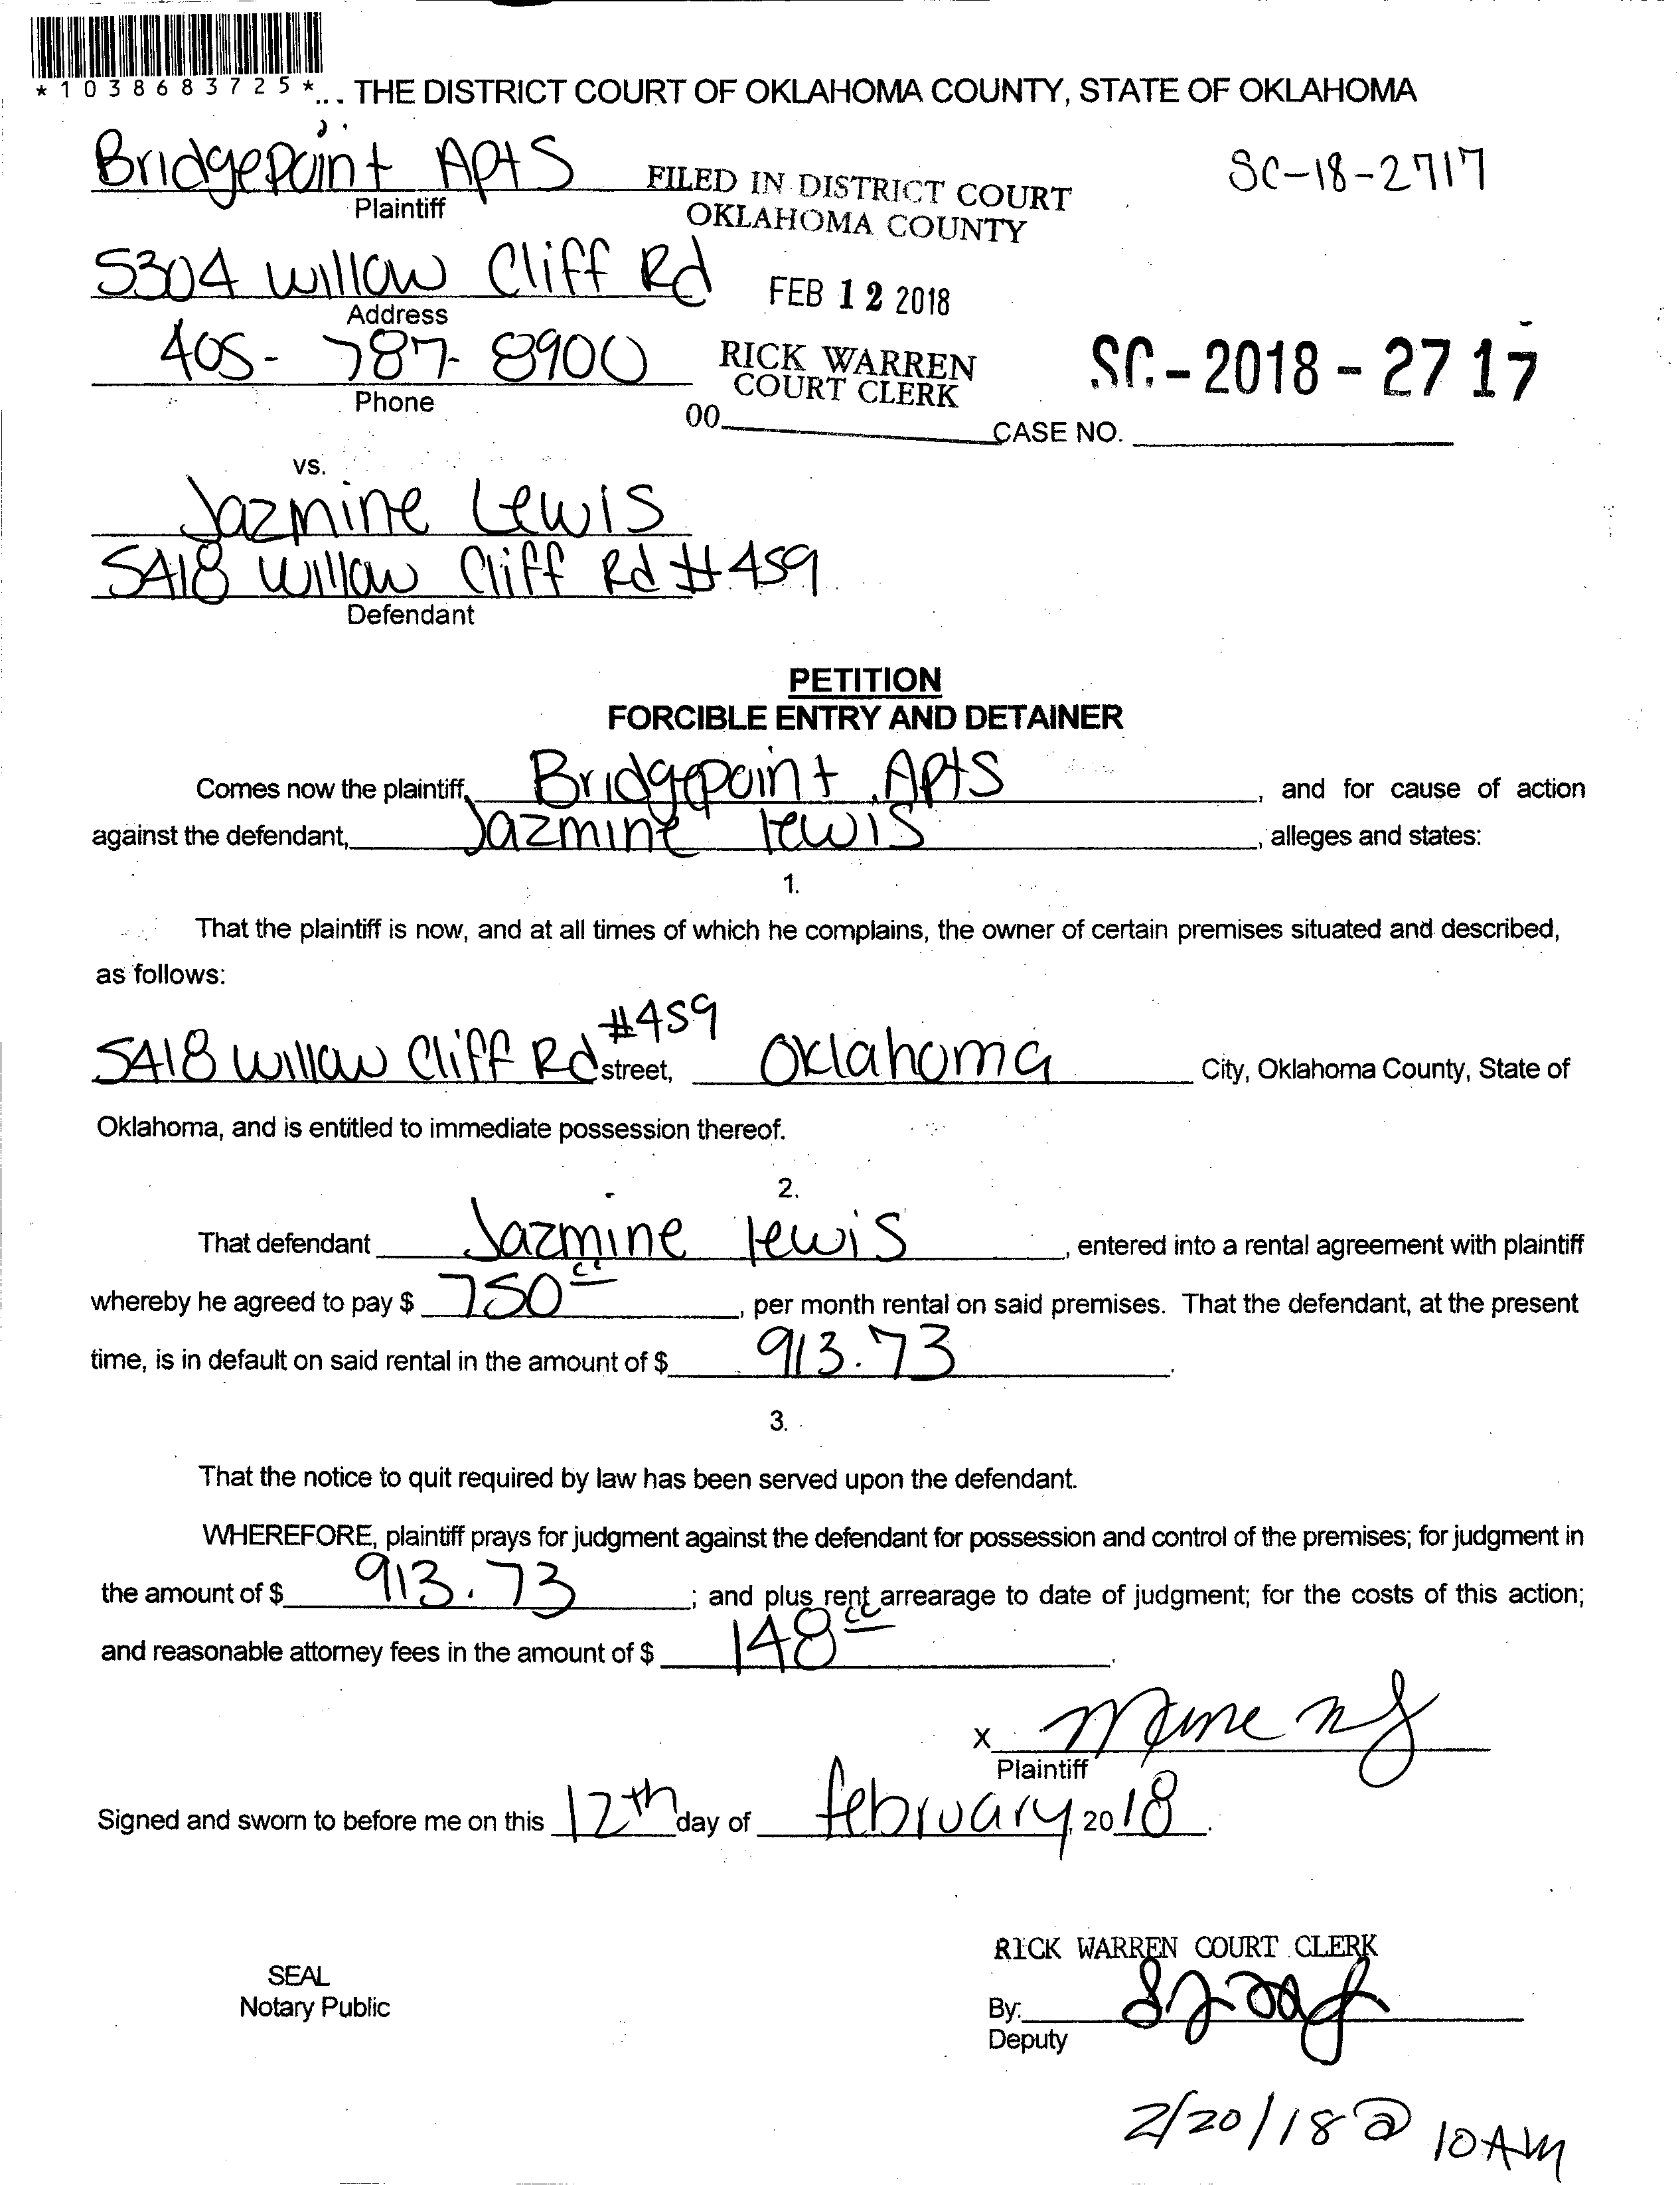 *1038683725*
THE DISTRICT COURT OF OKLAHOMA COUNTY, STATE OF OKLAHOMA
Bridgepoint Apts
Plaintiff
FILED IN DISTRICT COURT
OKLAHOMA COUNTY
SC-18-2717
5304 Willow Cliff Rd
Address
FEB 12 2018
405-787-8900
Phone
RICK WARREN
COURT CLERK
00
SC-2018-2717
CASE NO.
vs.
Jazmine Lewis
5418 Willow Cliff Rd #459
Defendant
PETITION
FORCIBLE ENTRY AND DETAINER
Comes now the plaintiff, Bridgepoint Apts, and for cause of action
against the defendant, Jazmine Lewis, alleges and states:
1.
That the plaintiff is now, and at all times of which he complains, the owner of certain premises situated and described,
as follows:
5418 Willow Cliff Rd #459 street, Oklahoma City, Oklahoma County, State of
Oklahoma, and is entitled to immediate possession thereof.
2.
That defendant Jazmine Lewis, entered into a rental agreement with plaintiff
whereby he agreed to pay $ 750 , per month rental on said premises. That the defendant, at the present
time, is in default on said rental in the amount of $ 913.73.
3.
That the notice to quit required by law has been served upon the defendant.
WHEREFORE, plaintiff prays for judgment against the defendant for possession and control of the premises; for judgment in
the amount of $ 913.73; and plus rent arrearage to date of judgment; for the costs of this action;
and reasonable attorney fees in the amount of $ 148 .
X
Plaintiff
Signed and sworn to before me on this 12th day of february, 2018.
RICK WARREN COURT CLERK
SEAL
Notary Public
By:
Deputy
2/20/18 @ 10AM